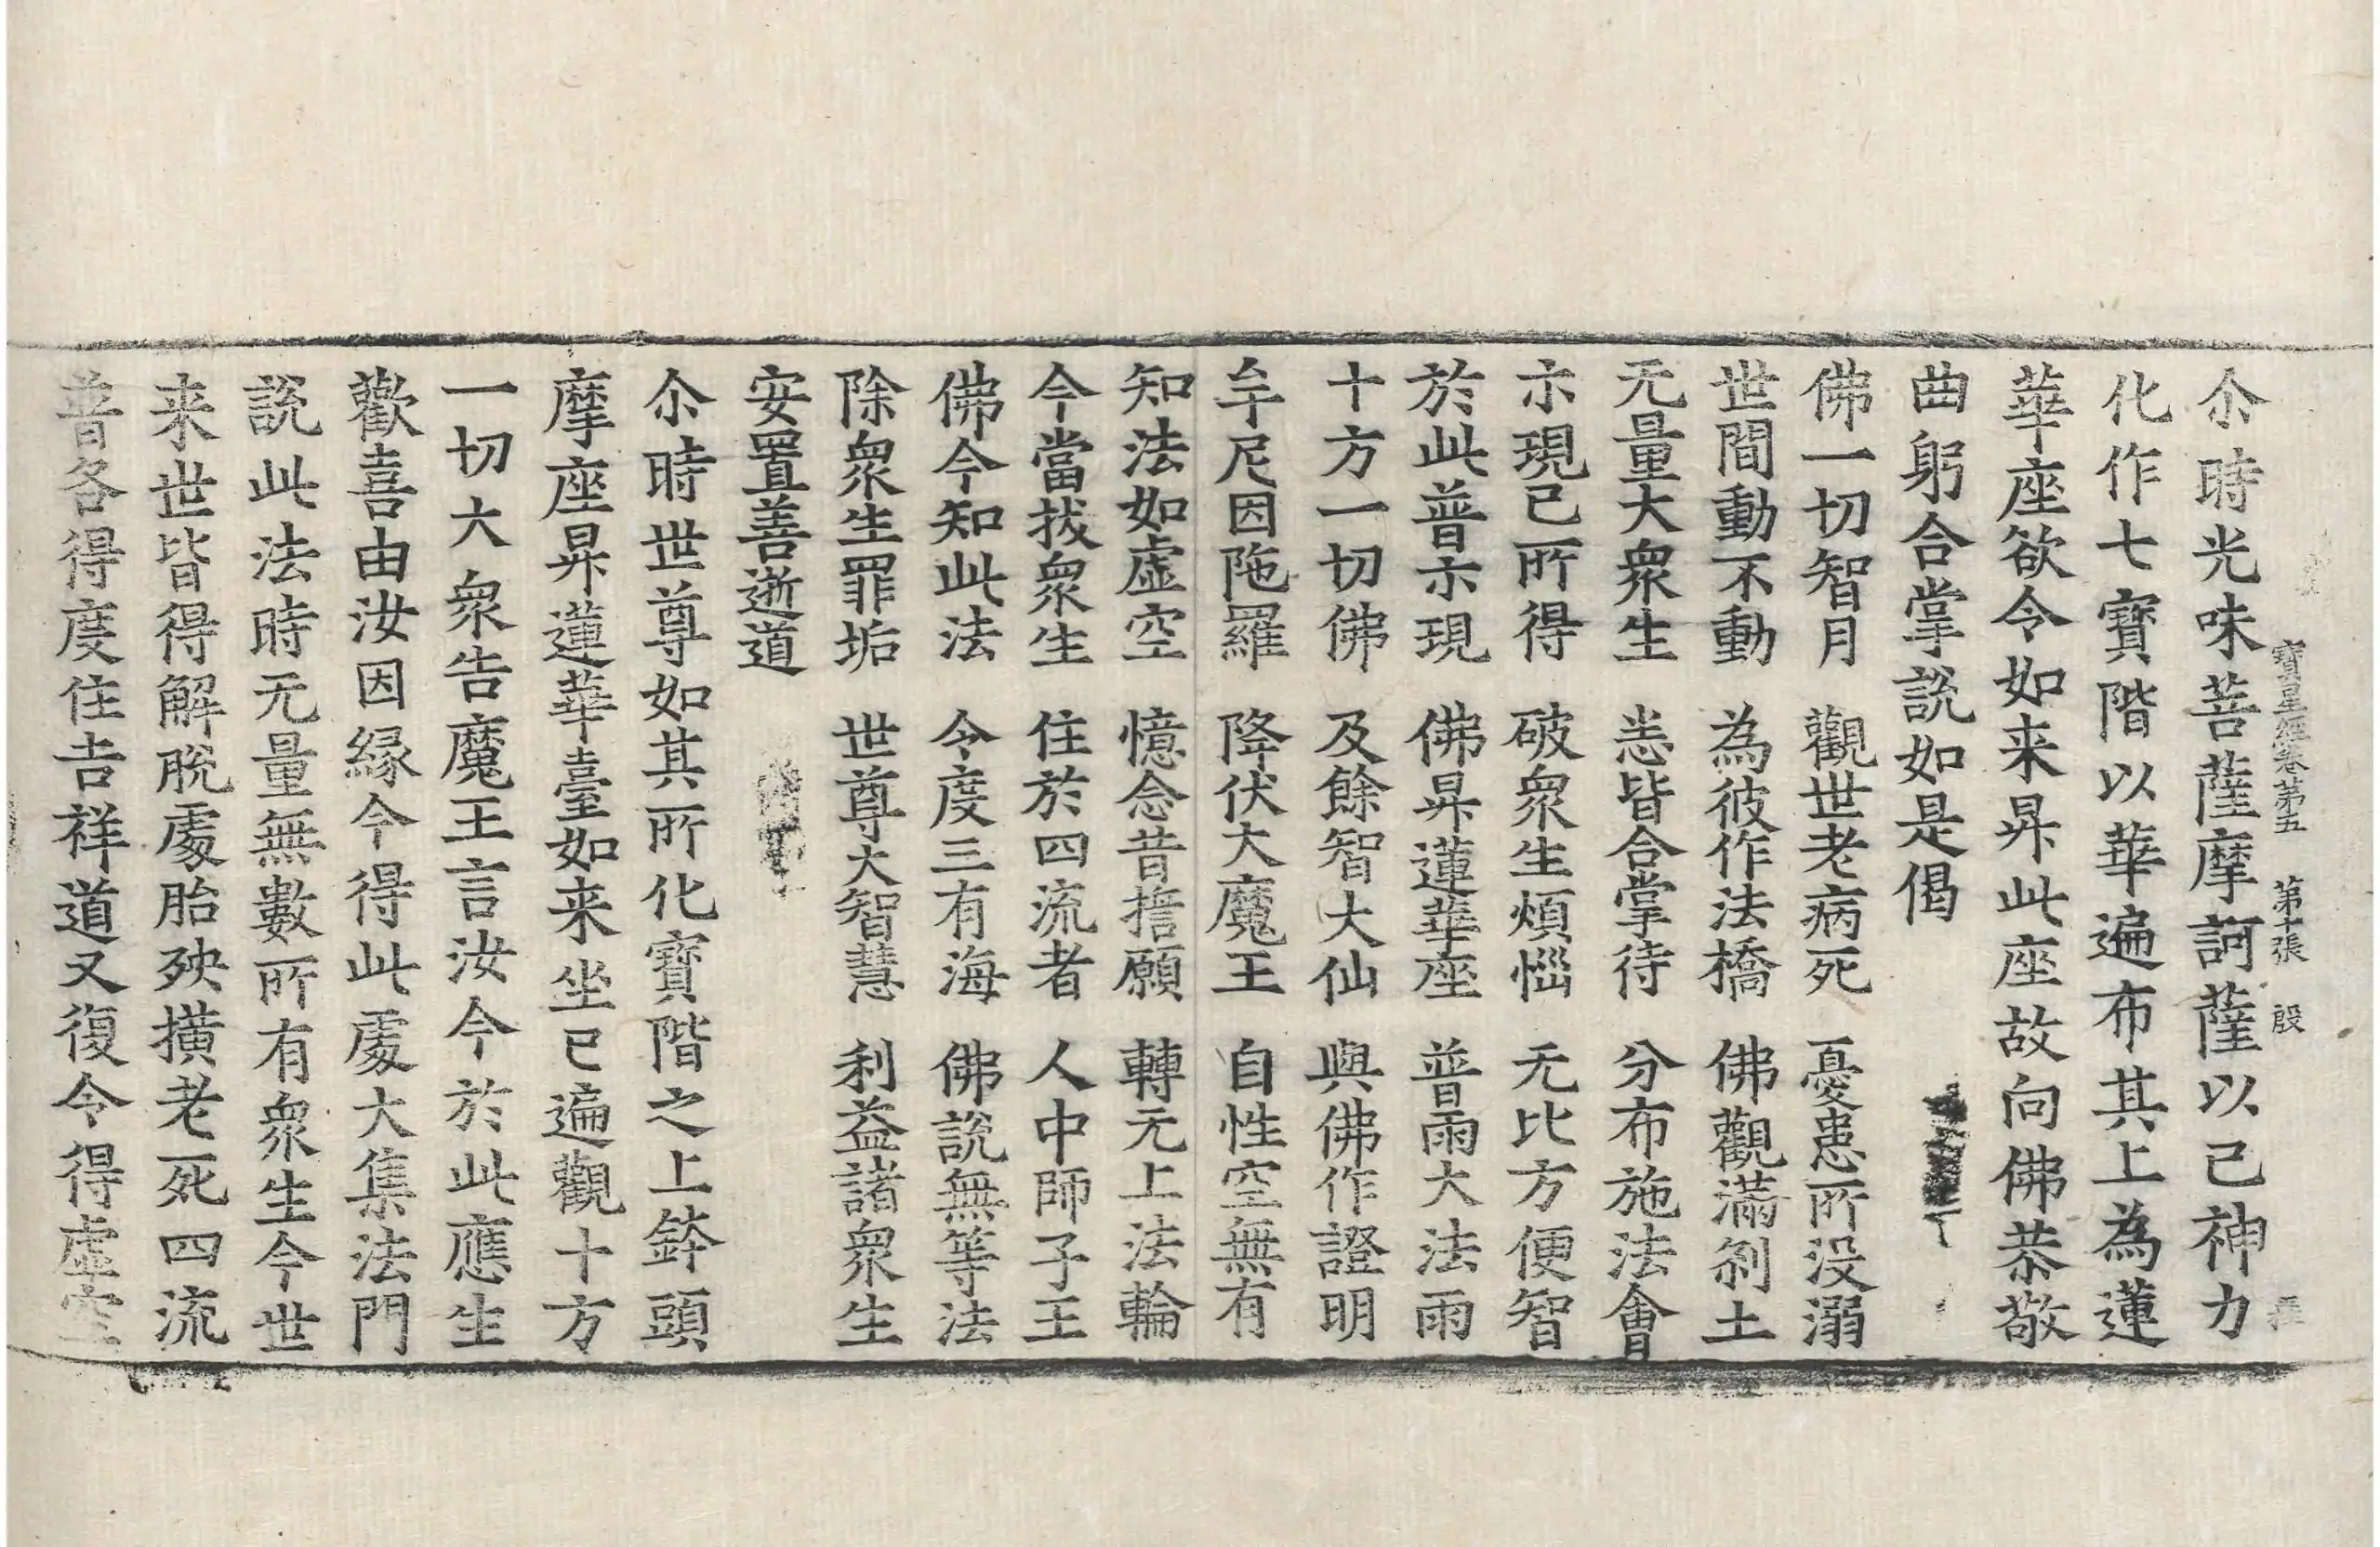 寶星經卷第五　第十張　殷
尒時光味菩薩摩訶薩以己神力
化作七寶階以華遍布其上為蓮
華座欲令如来昇此座故向佛恭敬
曲躬合掌說如是偈
佛一切智月　觀世老病死　憂患所没溺
世間動不動　為彼作法橋　佛觀滿刹土
无量大衆生　恙皆合掌待　分布施法會
示現已所得　破衆生煩惱　无比方便智
於此普示現　佛昇蓮華座　普雨大法雨
十方一切佛　及餘智大仙　與佛作證明
牟尼因陁羅　降伏大魔王　自性空無有
知法如虛空　憶念昔擔願　轉无上法輪
今當拔衆生　住於四流者　人中師子王
佛今知此法　令度三有海　佛說無等法
除衆生罪垢　世尊大智慧　利益諸衆生
安置善逝道
尒時世尊如其所化寶階之上鉾頭
摩座昇蓮華臺如来坐已遍觀十方
一切大衆告魔王言汝今於此應生
歡喜由汝因縁今得此處大集法門
說此法時无量無數所有衆生今世
来世皆得解脫處胎殃撗老死四流
普各得度住吉祥道又復令得虛空